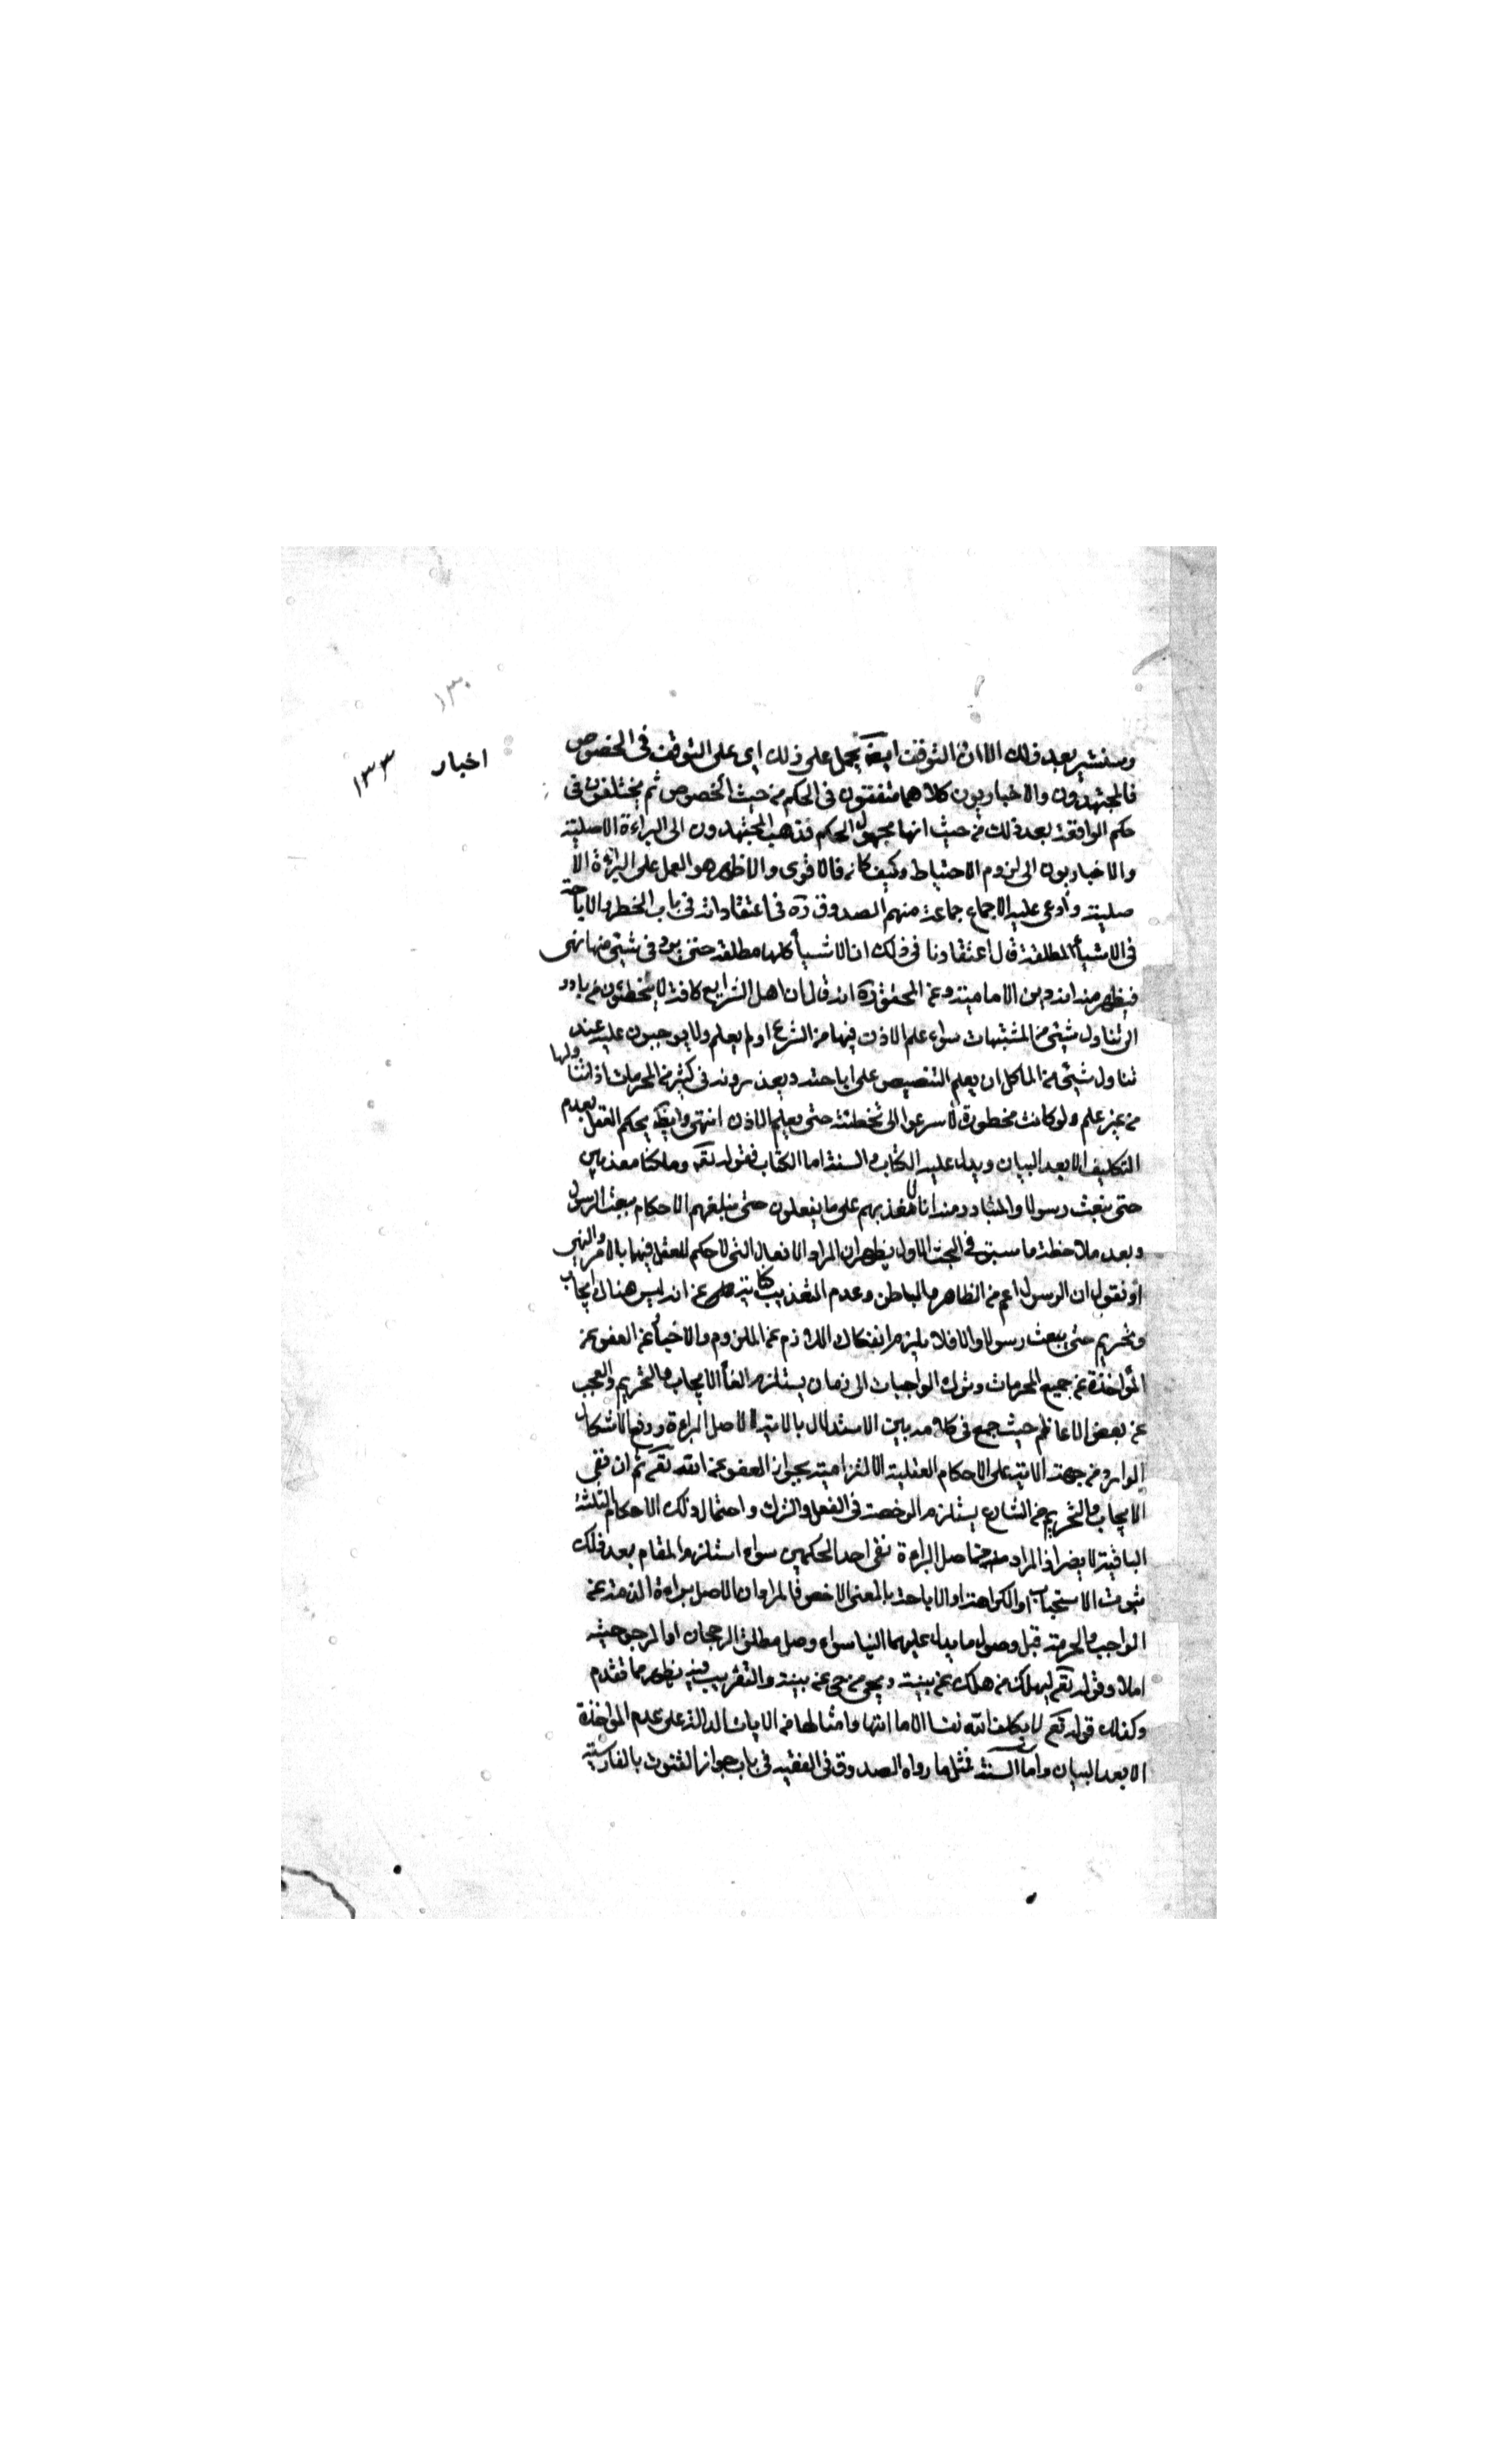 ١٣٠
اخبار ١٣٣
وسنشير بعد ذلك الا ان التوقف ايضا يحمل على ذلك اى على التوقف فى الخصوص
فالمجتهدون والاخباريون كلاهما متفقون فى الحكم من حيث الخصوص ثم يختلفون فى
حكم الواقعة بعد ذلك من حيث انها مجهول الحكم فذهب المجتهدون الى البراءة الاصلية
والاخباريون الى لزوم الاحتياط وكيف كان فالاقوى والاظهر هو العمل على البرائة الا
صلية وادعى عليه الاجماع جماعة منهم الصدوق ره فى اعتقاداته فى باب الخطر والاباحة
فى الاشياء المطلقة قال اعتقادنا فى ذلك ان الاشياء كلها مطلقة حتى يرد فى شيئى منها نهى
فيظهر منه انه دين الامامية وعن المحقق ره انه قال ان اهل الشرايع كافة لا يخطئون من بادر
الى تناول شيئى من المشتبهات سواء علم الاذن فيها من الشرع او لم يعلم ولا يوجبون عليه عند
تناول شيئى من المأكل ان يعلم التنصيص على اباحته ويعذرونه فى كثير من المحرمات اذا تناولها
من غير علم ولو كانت محظورة لاسرعوا الى تخطئته حتى يعلم الاذن انتهى وايضا يحكم العقل بعدم
التكليف الا بعد البيان ويدل عليه الكتاب والسنة اما الكتاب فقوله تعم وما كنا معذبين
حتى نبعث رسولا والمتبادر منه انا لا نعذبهم على ما يفعلون حتى نبلغهم الاحكام ببعث الرسول
وبعد ملاحظة ما سبق فى البحث الاول يظهر ان المراد الافعال التى لا حكم للعقل فيها بالامر والنهى
او نقول ان الرسول اعم من الظاهر والباطن وعدم التعذيب كناية عن انه ليس هناك ايجاب
وتحريم حتى يبعث رسولا والا فلا يلزم انفكاك اللازم عن الملزوم والاخبار عن العفو عن
المؤاخذة عن جميع المحرمات وترك الواجبات الى زمان يستلزم الغاء الايجاب والتحريم والعجب
عن بعض الاعاظم حيث جمع فى كلامه بين الاستدلال بالاية لاصل البراءة ودفع الاشكال
الوارد من جهة الاية على الاحكام العقلية الالزامية بجواز العفو عن الله تعم ثم ان نفى
الايجاب والتحريم من الشارع يستلزم الرخصة فى الفعل والترك واحتمال ذلك الاحكام الثلثة
الباقية لا يضر اذ المراد من اصل البراءة نفى احد الحكمين سواء استلزم المقام بعد ذلك
ثبوت الاستحباب او الكراهة او الاباحة بالمعنى الاخص فالمراد ان الاصل براءة الذمة عن
الواجب والحرمة قبل وصول ما يدل عليهما الينا سواء وصل مطلق الرجحان او المرجوحية
ام لا وقوله تعم ليهلك من هلك عن بينة ويحيى من حى عن بينة والتقريب فيه يظهر مما تقدم
وكذلك قوله تعم لا يكلف الله نفسا الا ما اتيها وامثالها من الايات الدالة على عدم المؤاخذة
الا بعد البيان واما السنة فمثل ما رواه الصدوق فى الفقيه فى باب جواز القنوت بالفارسية